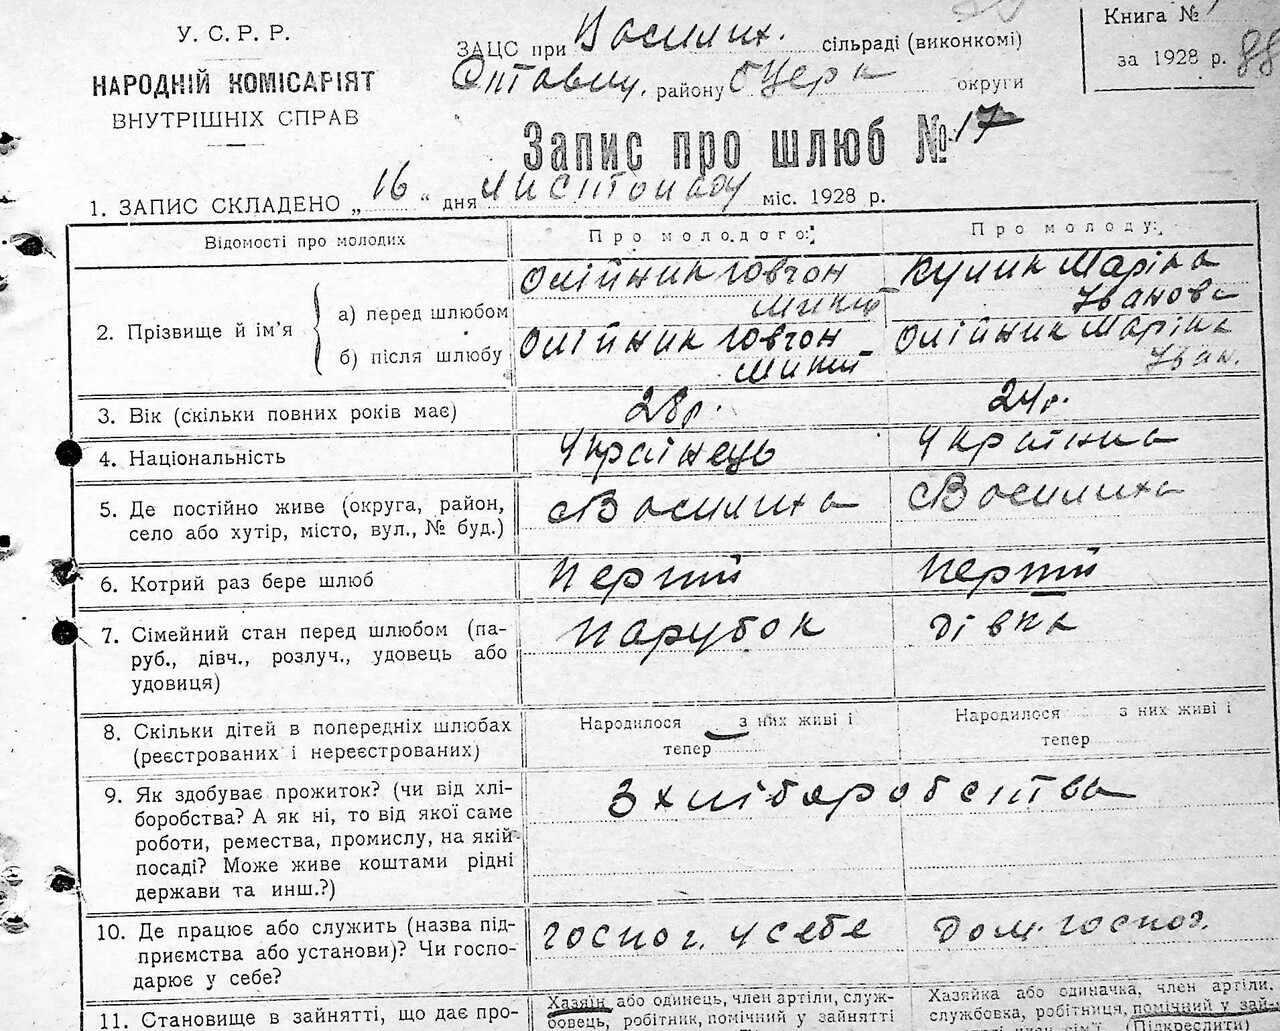 У. С. Р. Р.
НАРОДНІЙ КОМІСАРІЯТ
ВНУТРІШНІХ СПРАВ
ЗАЦС при Василих. сільраді (виконкомі)
району округи
Книга №
за 1928 р. 88
Запис про шлюб № 17
1. ЗАПИС СКЛАДЕНО „16“ дня листопаду міс. 1928 р.
Відомості про молодих
Про молодого:
Про молоду:
2. Прізвище й ім'я
а) перед шлюбом
Олійник
Кулик Маріка
Іванова
б) після шлюбу
Олійник
Олійник Маріка
Іван.
3. Вік (скільки повних років має)
28 р.
24 р.
4. Національність
Українець
Українка
5. Де постійно живе (округа, район,
село або хутір, місто, вул., № буд.)
с Василиха
с Василиха
6. Котрий раз бере шлюб
Перший
Перший
7. Сімейний стан перед шлюбом (па-
руб., дівч., розлуч., удовець або
удовиця)
Парубок
Дівка
8. Скільки дітей в попередніх шлюбах
(реєстрованих і нереєстрованих)
Народилося з них живі і
тепер
Народилося з них живі і
тепер
9. Як здобуває прожиток? (чи від хлі-
боробства? А як ні, то від якої саме
роботи, ремества, промислу, на якій
посаді? Може живе коштами рідні
держави та инш.?)
З хліборобства
10. Де працює або служить (назва під-
приємства або установи)? Чи госпо-
дарює у себе?
господ. у себе
дом. господ.
11. Становище в зайнятті, що дає про-
Хазяїн або одинець, член артіли, служ-
бовець, робітник, помічний у зайнятті
Хазяйка або одиначка, член артіли,
службовка, робітниця, помічний у зай-
(Підкреслить)